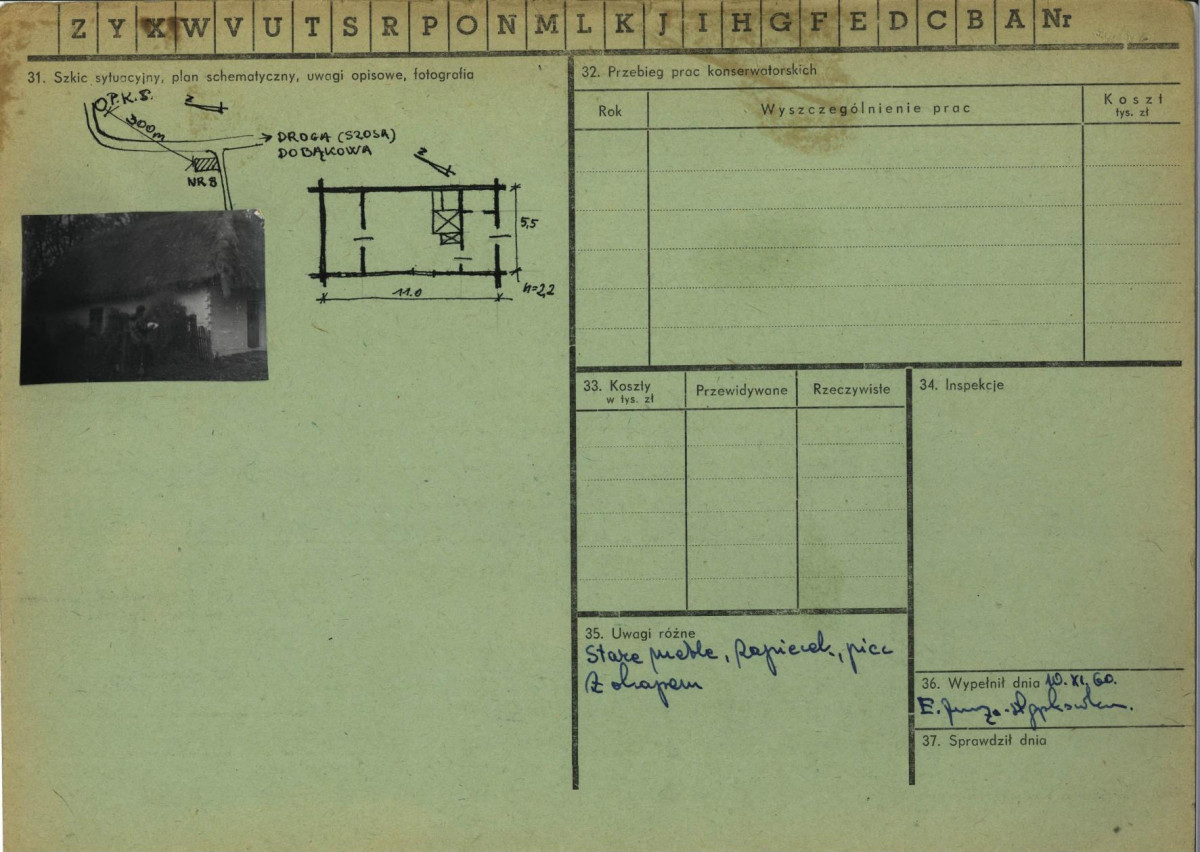 Z Y X W V U T S R P O N M L K J I H G F E D C B A Nr
31. Szkic sytuacyjny, plan schematyczny, uwagi opisowe, fotografia
O P.K.S.
Z
300m
DROGA (SZOSA)
DO BĄKOWA
NR 8
Z
5,5
11.0
h=2,2
32. Przebieg prac konserwatorskich
Rok
Wyszczególnienie prac
Koszt
tys. zł
33. Koszty
w tys. zł
Przewidywane
Rzeczywiste
34. Inspekcje
35. Uwagi różne
Stare meble, zapiecek, piec
z okapem
36. Wypełnił dnia 10.XI.60.
E.
37. Sprawdził dnia